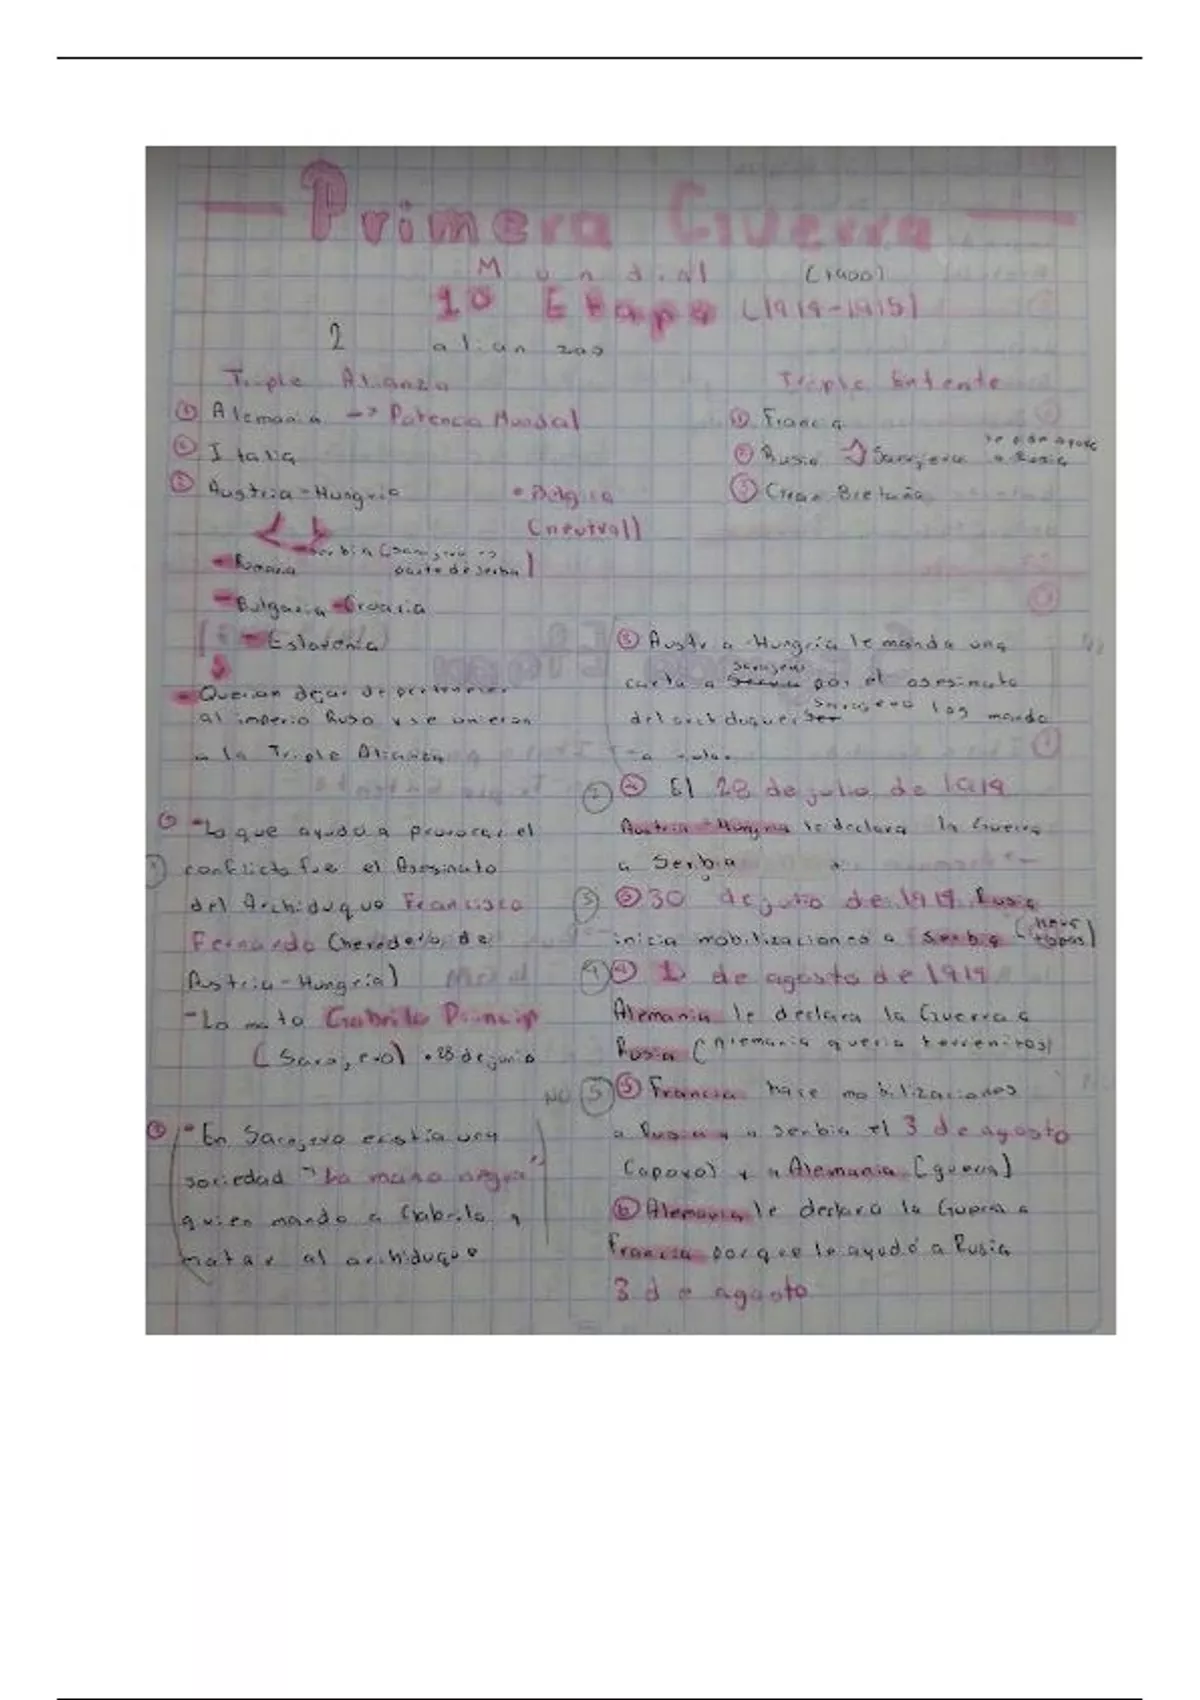 Primera Guerra
Mundial (1900)
1º Etapa (1914-1915)
2 alianzas
Triple Alianza
① Alemania -> Potencia Mundial
② Italia
③ Austria-Hungría
• Bélgica
(neutral)
- Serbia (Sarajevo es
parte de serbia)
- Rumania
- Bulgaria - Croacia
- Eslovenia
- Querian dejar de pertenecer
al imperio Ruso y se unieron
a la Triple Alianza
Triple Entente
① Francia
② Rusia Sarajevo se pide ayuda
a Rusia
③ Gran Bretaña
① - Lo que ayudó a provocar el
conflicto fue el Asesinato
del Archiduque Francisco
Fernando (heredero de
Austria-Hungría)
- Lo mato Gabrilo Princip
(Sarajevo) • 28 de junio
• En Sarajevo existia una
sociedad "La mano negra"
quien mando a Gabrilo a
matar al archiduque
③ Austria-Hungría le manda una
carta a Sarajevo por el asesinato
del archiduque Sarajevo los mando
a volar
② ④ El 28 de julio de 1914
Austria-Hungria le declara la Guerra
a Serbia
③ 30 de julio de 1914 Rusia
inicia mobilizaciones a Serbia (lleva
tropas)
④ ④ 1 de agosto de 1914
Alemania le declara la Guerra a
Rusia (Alemania queria terrenitos)
NO ⑤ ⑤ Francia hace mobilizaciones
a Rusia y a serbia el 3 de agosto
(apoyo) y a Alemania (guerra)
⑥ Alemania le declaró la Guerra a
Francia porque le ayudó a Rusia
3 de agosto